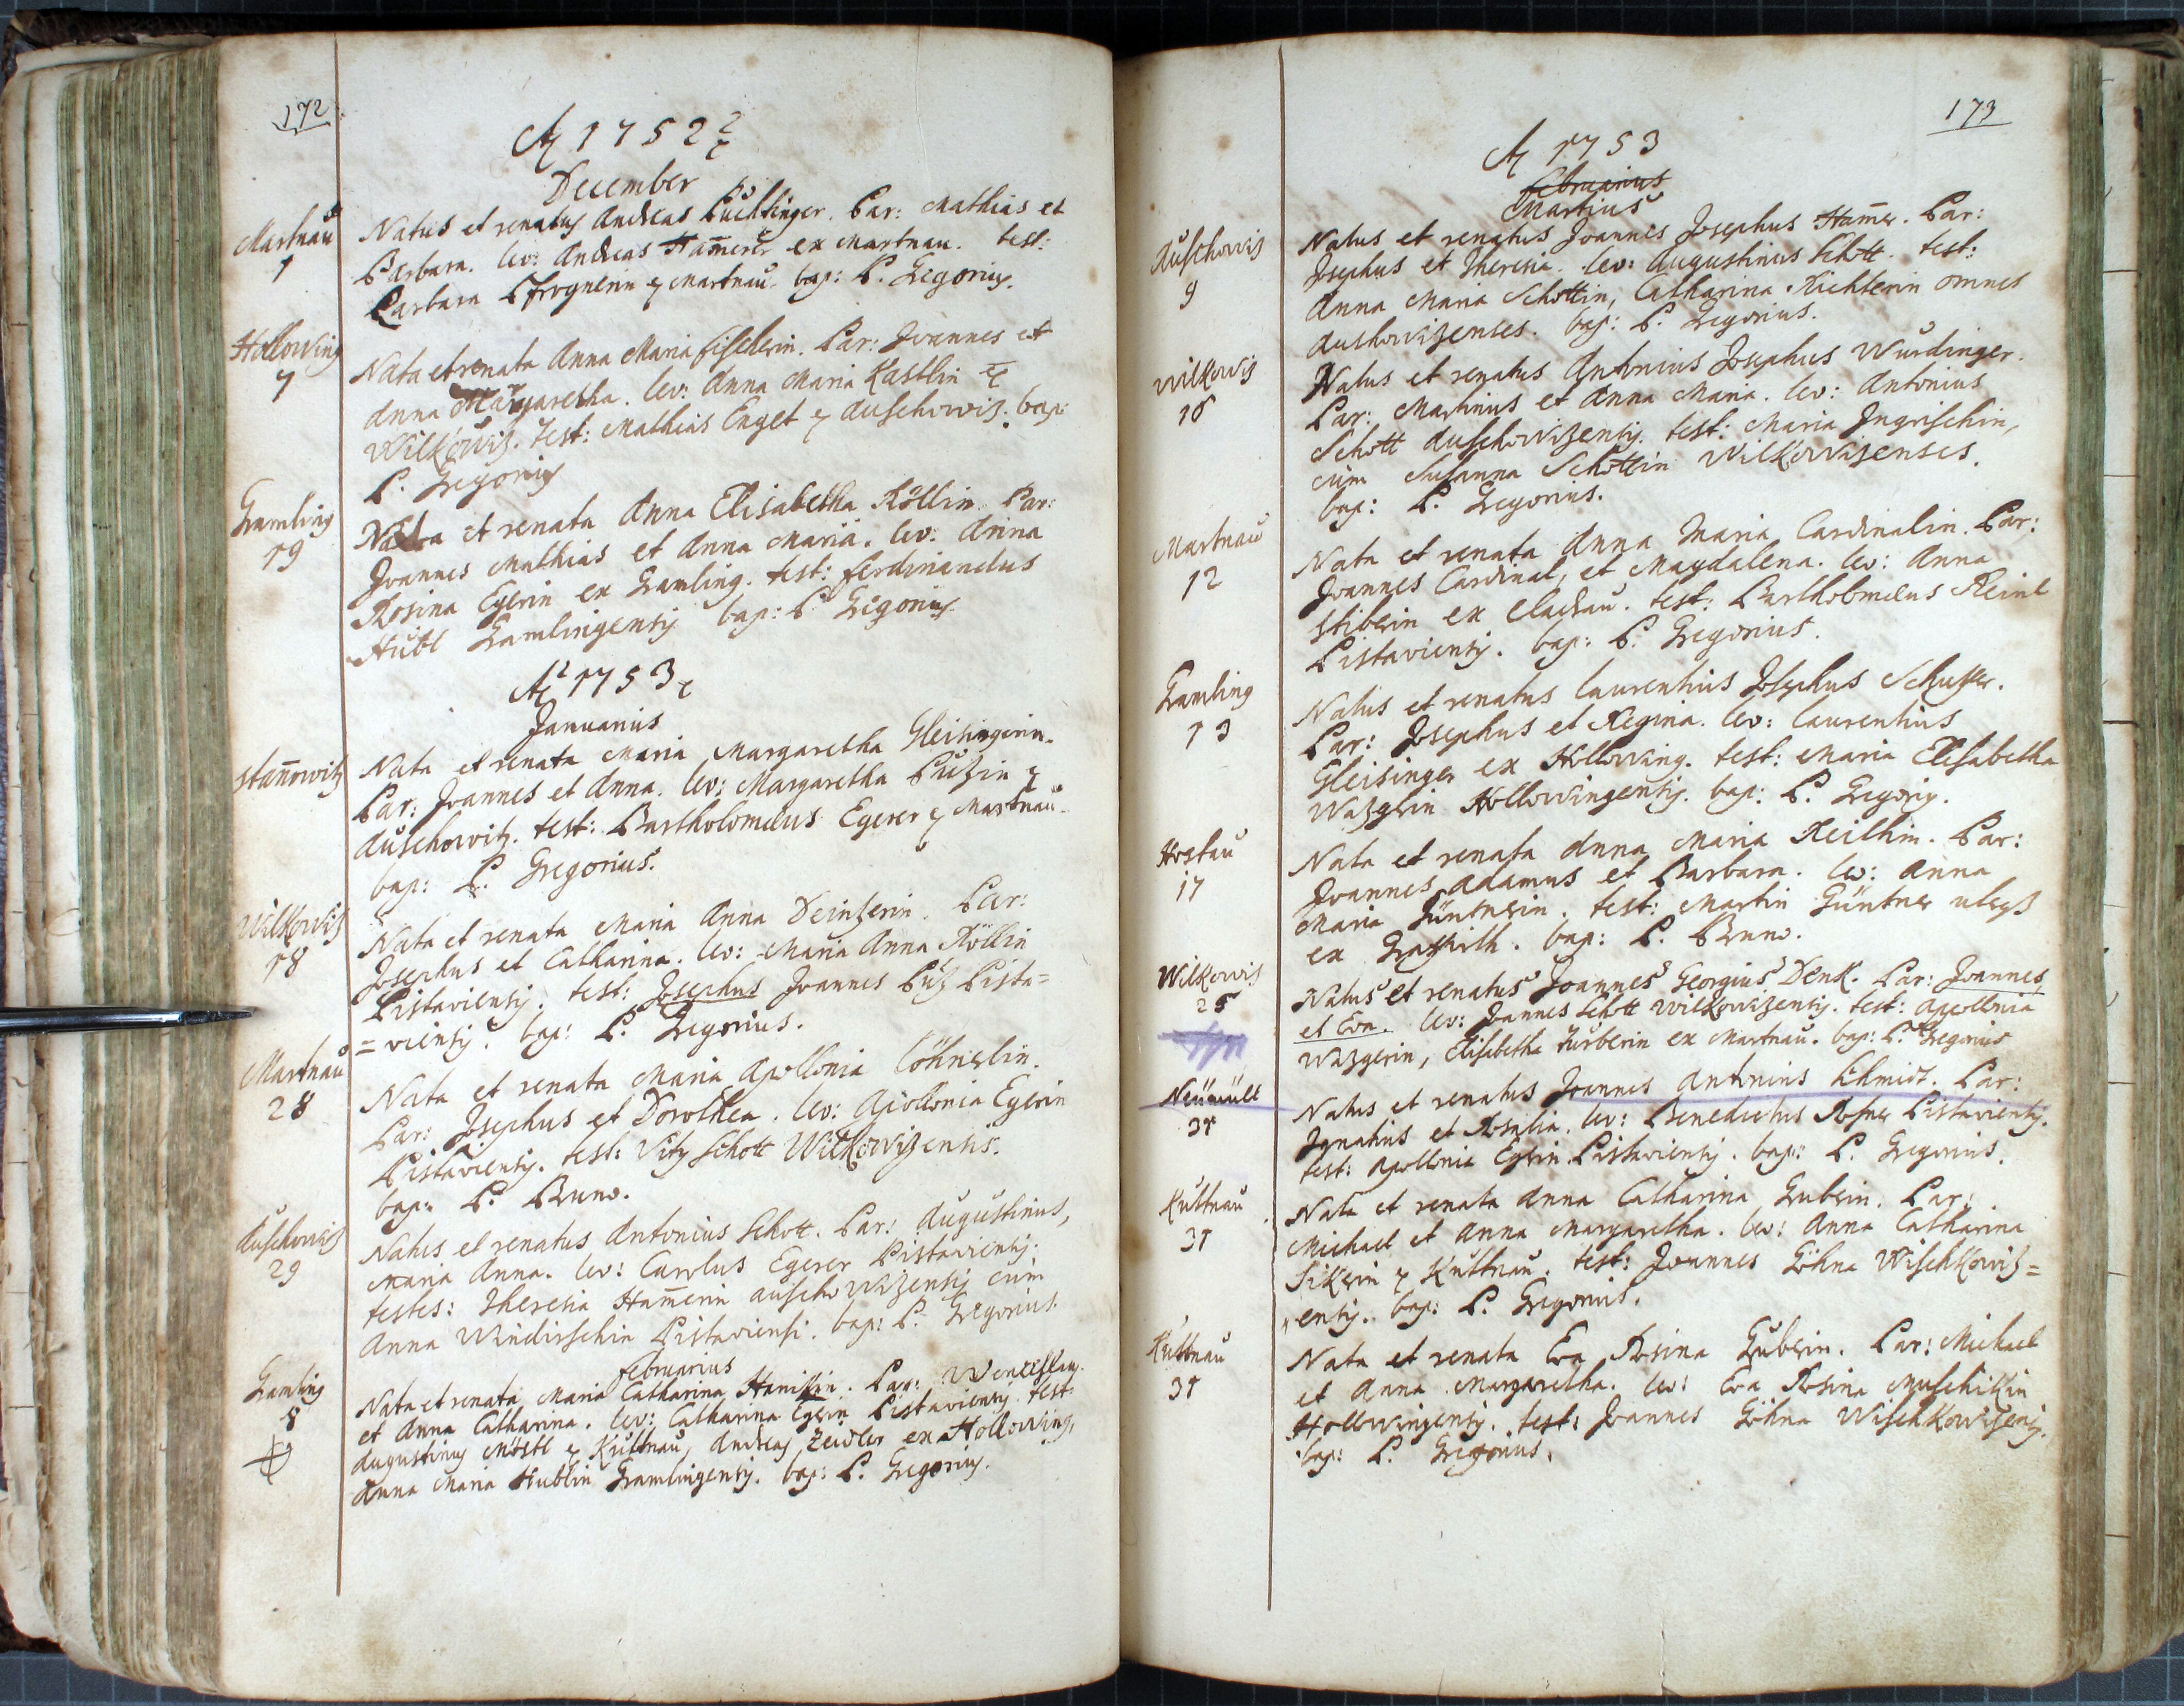 172
A 1752
December
Martnau
1
Natus et renatus Andreas Püchtinger. Par: Mathias et
Barbara. lev: Andreas Ham̅erer ex Martnau. test:
Barbara ex Martnau. bap: P. Gregorius.
Hollowing
7
Nata et renata Anna Maria Fischerin. Par: Joannes et
Anna Margaretha. lev: Anna Maria Kastlin ex
Wilkowiz. test: Mathias Enget ex Auschowiz. bap:
P. Gregorius
Gramling
19
Nata et renata Anna Elisabetha Röllin. Par:
Joannes Mathias et Anna Maria. lev: Anna
Rosina Egerin ex Gramling. test: Ferdinandus
Hübl Gramlingensis bap: P. Gregorius
A 1753
Januarius
Stan̅owitz
Nata et renata Maria Margaretha Gleisingerin.
Par: Joannes et Anna. lev: Margaretha Püzin ex
Auschowitz. test: Bartholomæus Egerer ex Martnau.
bap: P. Gregorius.
Wilkowiz
18
Nata et renata Maria Anna Deinzerin. Par:
Josephus et Catharina. lev: Maria Anna Röllin
Pistaviensis. test: Josephus Joannes Püz Pista=
=viensis. bap: P. Gregorius.
Martnau
28
Nata et renata Maria Apollonia Löhnerlin.
Par: Josephus et Dorothea. lev: Apollonia Egerin
Pistaviensis. test: Vitus Schott Wilkowizensis.
bap: P. Bruno.
Auschowiz
29
Natus et renatus Antonius Schott. Par: Augustinus,
Maria Anna. lev: Carolus Egerer Pistaviensis.
testes: Theresia Ham̅erin Auschowizensis cum
Anna Windisschin Pistaviensi. bap: P. Gregorius.
Februarius
Gramling
8
Nata et renata Maria Catharina Par: Wenceslaus
et Anna Catharina. lev: Catharina Egerin Pistaviensis. test:
Augustinus Möstl ex Kuttnau, Andreas Zeidler ex Hollowing,
Anna Maria Hublin Gramlingensis. bap: P. Gregorius.
173
A 1753
Februarius
Martius
Auschowiz
9
Natus et renatus Joannes Josephus Ham̅er. Par:
Josephus et Theresia. lev: Augustinus Schott. test:
Anna Maria Schottin, Catharina Richterin omnes
Auschowizenses. bap: P. Gregorius.
Wilkowiz
10
Natus et renatus Antonius Josephus Wurdinger.
Par: Martinus et Anna Maria. lev: Antonius
Schott Auschowizensis. test: Maria Ingrischin,
cum Susanna Schottin Wilkowizenses.
bap: P. Gregorius.
Martnau
12
Nata et renata Anna Maria Cardinalin. Par:
Joannes Cardinal, et Magdalena. lev: Anna
Stiberin ex test: Bartholomæus Reinl
Pistaviensis. bap: P. Gregorius.
Gramling
13
Natus et renatus Laurentius Josephus Schuster.
Par: Josephus et Regina. lev: Laurentius
Gleisinger ex Hollowing. test: Maria Elisabetha
Wazgerin Hollowingensis. bap: P. Gregorius.
Hostau
17
Nata et renata Anna Maria Reithin. Par:
Joannes Adamus et Barbara. lev: Anna
Maria Güntnerin. test: Martin Güntner
ex bap: P. Bruno.
Wilkowiz
25
Natus et renatus Joannes Georgius Denk. Par: Joannes
et Eva. lev: Joannes Schott Wilkowizensis. test: Apollonia
Wazgerin, Elisabetha Turberin ex Martnau. bap: P. Gregorius
Neümült
31
Natus et renatus Joannes Antonius Schmidt. Par:
Ignatius et Rosalia. lev: Benedictus Rosner Pistaviensis.
test: Apollonia Egerin Pistaviensis. bap: P. Gregorius.
Kuttnau
31
Nata et renata Anna Catharina Gruberin. Par:
Michael et Anna Margaretha. lev: Anna Catharina
Sikerin ex Kuttnau. test: Joannes Göhna Wischkowiz=
ensis. bap: P. Gregorius.
Kuttnau
31
Nata et renata Eva Rosina Gruberin. Par: Michael
et Anna Margaretha. lev: Eva Rosina Muschikin
Hollowingensis. test: Joannes Göhna Wischkowizensis.
bap: P. Gregorius.